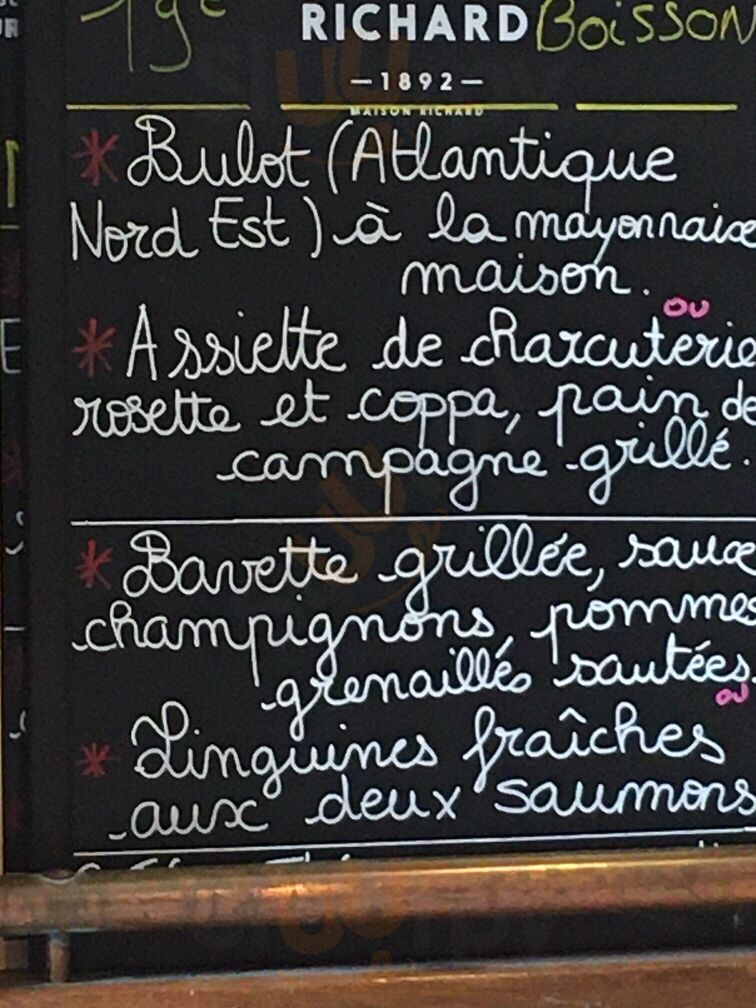 19€ RICHARD Boisson
—1892—
MAISON RICHARD
* Bulot (Atlantique
Nord Est) à la mayonnaise
maison.
ou
* Assiette de charcuterie
rosette et coppa, pain de
campagne grillé.
* Bavette grillée, sauce
champignons, pommes
grenailles sautées.
ou
* Linguines fraîches
aux deux saumons